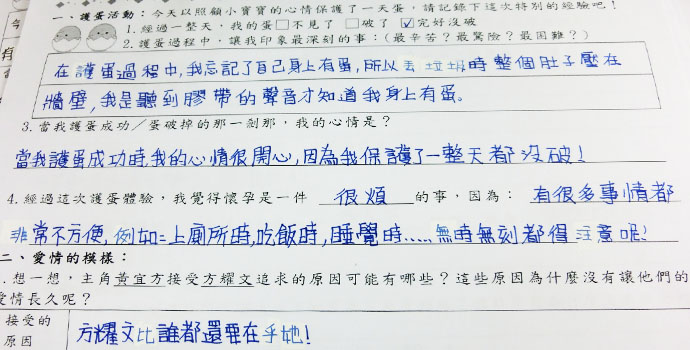 一、護蛋活動：今天以照顧小寶寶的心情保護了一天蛋，請記錄下這次特別的經驗吧！
1. 經過一整天，我的蛋□不見了 □破了 ☑完好沒破
2. 護蛋過程中，讓我印象最深刻的事：(最辛苦？最驚險？最困難？)
在護蛋過程中，我忘記了自己身上有蛋，所以丟垃圾時整個肚子壓在
牆壁，我是聽到膠帶的聲音才知道我身上有蛋。
3. 當我護蛋成功／蛋破掉的那一剎那，我的心情是？
當我護蛋成功時，我的心情很開心，因為我保護了一整天都沒破！
4. 經過這次護蛋體驗，我覺得懷孕是一件 很煩 的事，因為： 有很多事情都
非常不方便，例如：上廁所時，吃飯時，睡覺時.....，無時無刻都得注意呢！
二、愛情的模樣：
1. 想一想，主角黃宜方接受方耀文追求的原因可能有哪些？這些原因為什麼沒有讓他們的
愛情長久呢？
接受的
原因
方耀文比誰都還要在乎她！